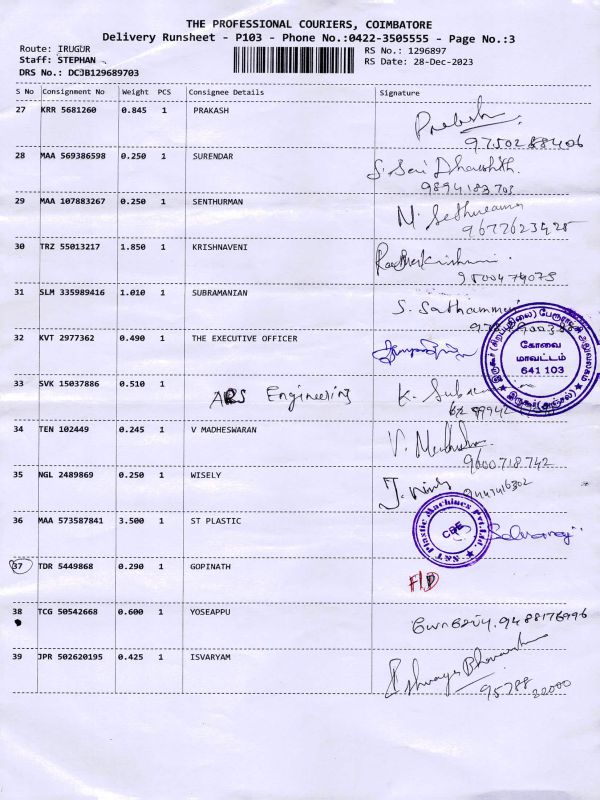 THE PROFESSIONAL COURIERS, COIMBATORE
Delivery Runsheet - P103 - Phone No.:0422-3505555 - Page No.:3
Route: IRUGUR
RS No.: 1296897
Staff: STEPHAN
RS Date: 28-Dec-2023
DRS No.: DCJB129689703
S No Consignment No Weight PCS Consignee Details Signature
27 KRR 5681260 0.845 1 PRAKASH Prakash
9750288406
28 MAA 569386598 0.250 1 SURENDAR
9894183703
29 MAA 107883267 0.250 1 SENTHURMAN
9677623425
30 TRZ 55013217 1.850 1 KRISHNAVENI
9500474075
31 SLM 335989416 1.010 1 SUBRAMANIAN
32 KVT 2977362 0.490 1 THE EXECUTIVE OFFICER
கோவை
மாவட்டம்
641 103
33 SVK 15037886 0.510 1 ARS Engineering
34 TEN 102449 0.245 1 V MADHESWARAN
9600718742
35 NGL 2489869 0.250 1 WISELY
36 MAA 573587841 3.500 1 ST PLASTIC
Plastic Machines Pvt.Ltd.
CBE
37 TDR 5449868 0.290 1 GOPINATH
38 TCG 50542668 0.600 1 YOSEAPPU 9488176996
39 JPR 502620195 0.425 1 ISVARYAM